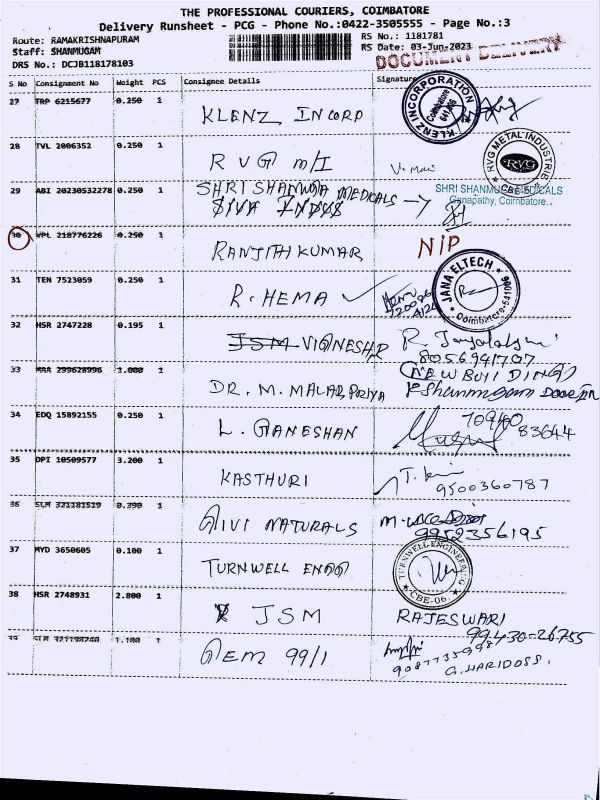 THE PROFESSIONAL COURIERS, COIMBATORE
Delivery Runsheet - PCG - Phone No.:0422-3505555 - Page No.:3
Route: RAMAKRISHNAPURAM
RS No.: 1181781
Staff: SHANMUGAM
RS Date: 03-Jun-2023
DRS No.: DCJB118178103
DOCUMENT DELIVERY
S No Consignment No Weight PCS Consignee Details Signature
27 TRP 6215677 0.250 1
KLENZ INCORP
KLENZ INCORPORATION
Coimbatore
28 TVL 2006352 0.250 1
RVG M/I
RVG METAL INDUSTRIES
RVG
CBE
29 ABI 20230532278 0.250 1
SHRI SHANMUGA MEDICALS
SHRI SHANMUGA MEDICALS
Ganapathy, Coimbatore..
30 VPL 218776226 0.250 1
RANJITH KUMAR
NIP
31 TEN 7523059 0.250 1
R. HEMA
JANA ELTECH
Coimbatore
32 HSR 2747228 0.195 1
JSM VIGNESH.R
8056941707
33 MAA 299628996 1.000 1
DR. M. MALAR PRIYA
NEW BUILDING
Shanmugam
34 EDQ 15892155 0.250 1
L. GANESHAN
83644
35 DPI 10509577 3.200 1
KASTHURI
9500360787
36 SLM 321181519 0.390 1
GIVI NATURALS
9952356195
37 MYD 3650605 0.100 1
TURNWELL ENGG
TURNWELL ENGINEERING
CBE-06.
38 HSR 2748931 2.800 1
JSM
RAJESWARI
99430-26755
39 SLM 321198740 1.180 1
GEM 99/1
G. HARIDOSS.